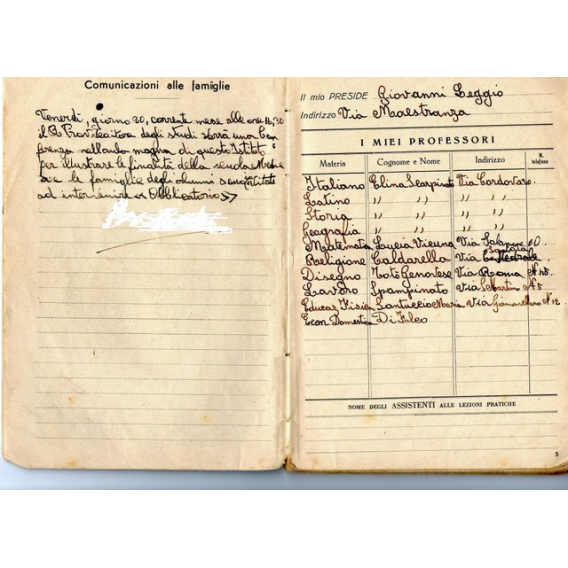 Comunicazioni alle famiglie
Venerdì, giorno 20, corrente mese alle ore 16,30
il R. Provveditore degli Studi terrà una Con
ferenza nell'aula magna di questo Istituto
per illustrare le finalità della scuola Media
e le famiglie degli alunni sono invitate
ad intervenire << Obbligatorio >>
Il mio PRESIDE Giovanni Leggio
Indirizzo Via Maestranza
I MIEI PROFESSORI
Materia Cognome e Nome Indirizzo N. telefono
Italiano Elina Scarpinato Via Cordovaro.
Latino " "
Storia " "
Geografia " "
Matemat. Lucia Vicuna Via
Religione Caldarella Via
Disegno Totò Genovese Via Roma
Lavoro Spampinato Via S. Martino N 5
Educaz. Fisica Santuccio Maria Via N 12
Econ Domestica Di
NOME DEGLI ASSISTENTI ALLE LEZIONI PRATICHE
5